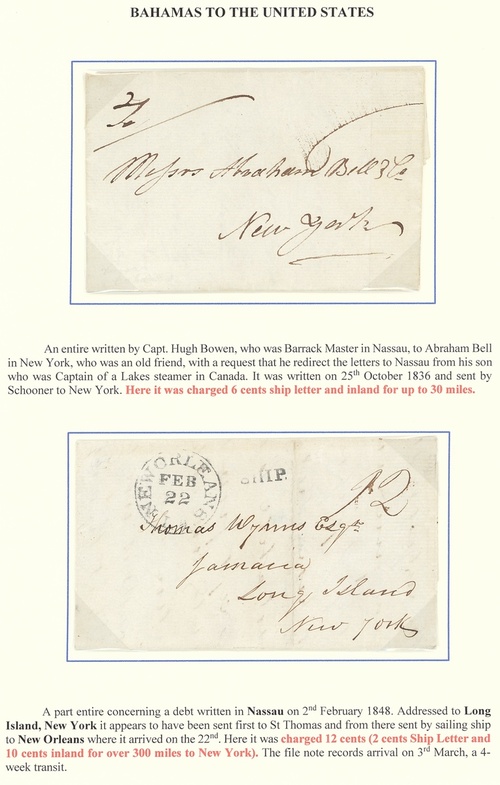 BAHAMAS TO THE UNITED STATES
Messrs Abraham Bell & Co
New York
An entire written by Capt. Hugh Bowen, who was Barrack Master in Nassau, to Abraham Bell
in New York, who was an old friend, with a request that he redirect the letters to Nassau from his son
who was Captain of a Lakes steamer in Canada. It was written on 25th October 1836 and sent by
Schooner to New York. Here it was charged 6 cents ship letter and inland for up to 30 miles.
NEW ORLEANS
FEB
22
SHIP
12
Thomas Wynns Esqre
Jamaica
Long Island
New York
A part entire concerning a debt written in Nassau on 2nd February 1848. Addressed to Long
Island, New York it appears to have been sent first to St Thomas and from there sent by sailing ship
to New Orleans where it arrived on the 22nd. Here it was charged 12 cents (2 cents Ship Letter and
10 cents inland for over 300 miles to New York). The file note records arrival on 3rd March, a 4-
week transit.